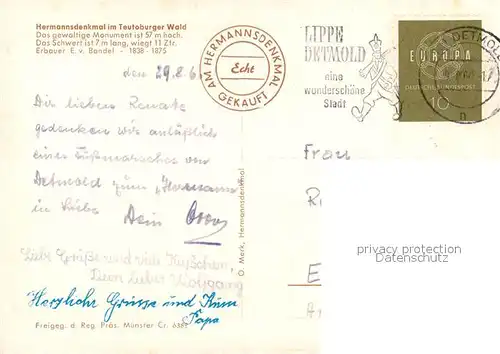 Hermannsdenkmal im Teutoburger Wald
Das gewaltige Monument ist 57 m hoch.
Das Schwert ist 7 m lang, wiegt 11 Ztr.
Erbauer E. v. Bandel - 1838 - 1875
AM HERMANNSDENKMAL
Echt
GEKAUFT
LIPPE
DETMOLD
eine
wunderschöne
Stadt
EUROPA
DEUTSCHE BUNDESPOST
10
DETMOLD
n
den 29.8.6
Dir liebe Renate
gedenken wir anläßlich
eines Fußmarsches von
Detmold zum "Hermann"
in Liebe Dein
Liebe Grüße und viele Küßchen,
Dein lieber Wolfgang
Herzliche Grüsse und Kuss
Papa
Freigeg. d. Reg. Präs. Münster Cr. 6382
O. Merk, Hermannsdenkmal
Frau
R
E
A
privacy protection
Datenschutz